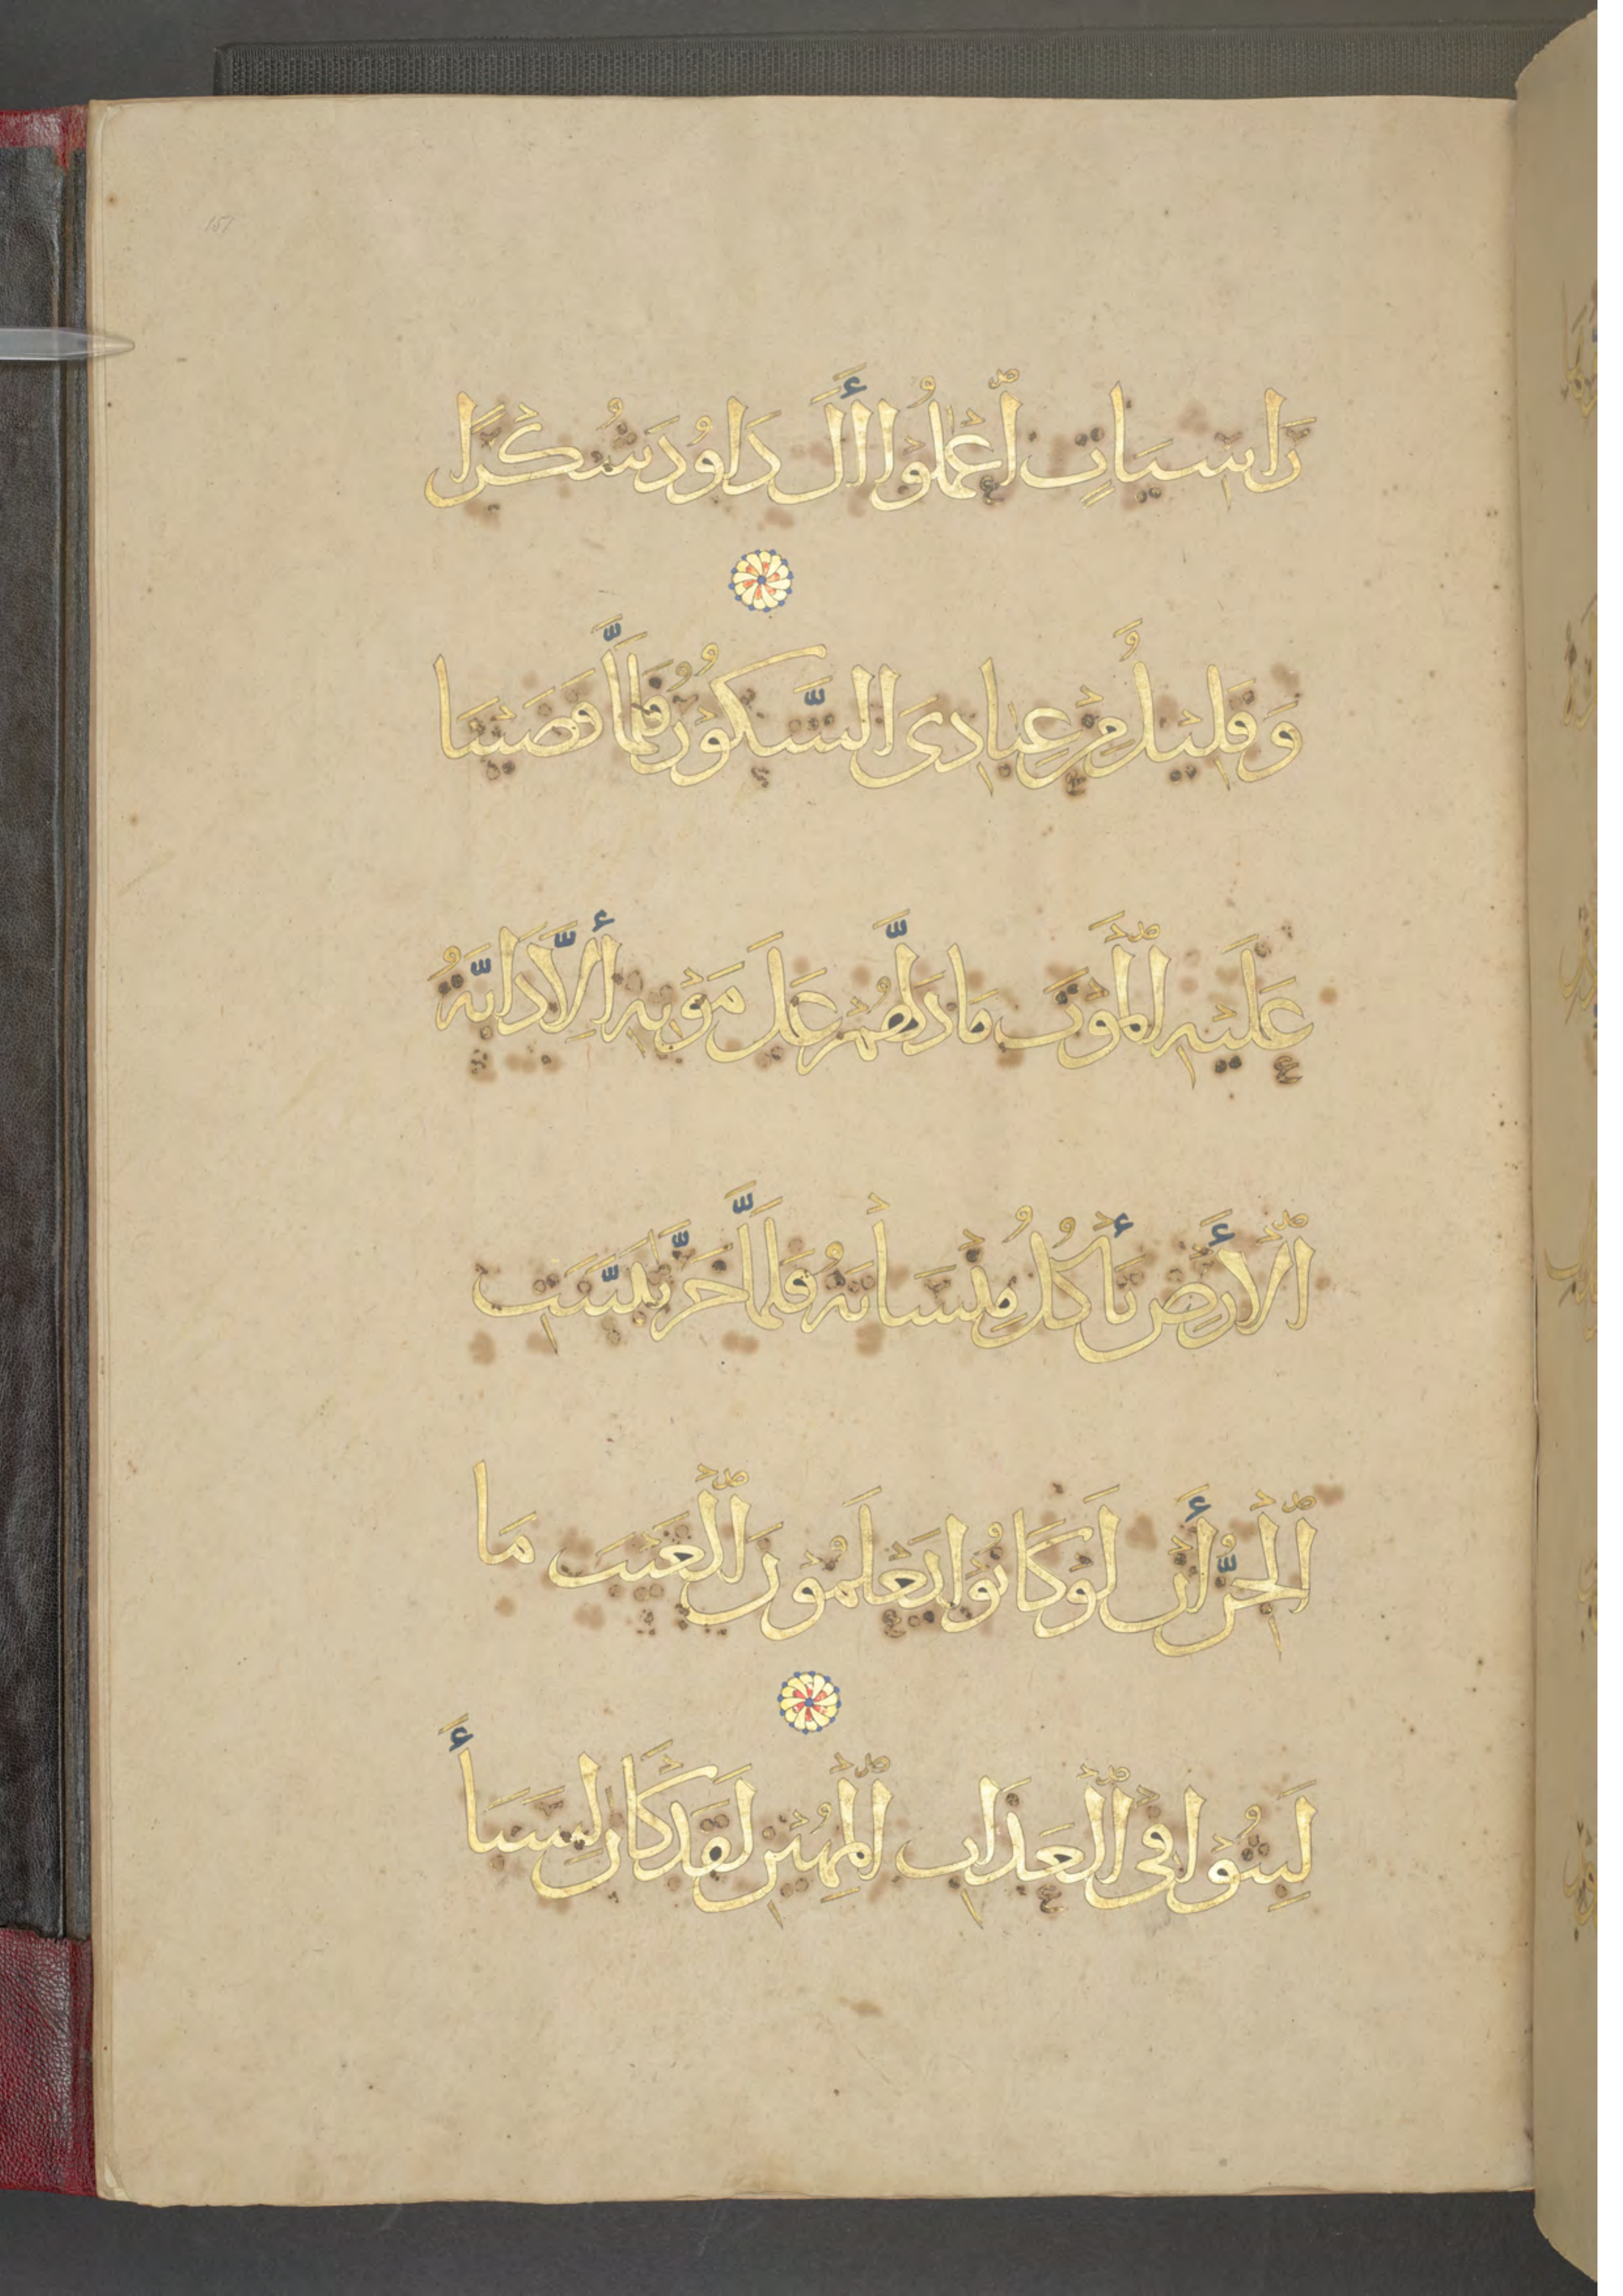 رَاسِيَاتٍ ٱعْمَلُوٓا أَٰلَ دَاوُدَ شُكْرًا
وَقَلِيلٌ مِنْ عِبَادِىَ الشَّكُورُ فَلَمَّا قَضَيْنَا
عَلَيْهِ ٱلْمَوْتَ مَا دَلَّهُمْ عَلَى مَوْتِهِ إِلَّا دَابَّةُ
ٱلْأَرْضِ تَأْكُلُ مِنْسَأَتَهُ فَلَمَّا خَرَّ تَبَيَّنَتِ
ٱلْجِنُّ أَنْ لَوْ كَانُوا يَعْلَمُونَ ٱلْغَيْبَ مَا
لَبِثُوا فِى ٱلْعَذَابِ ٱلْمُهِينِ لَقَدْ كَانَ لِسَبَأٍ